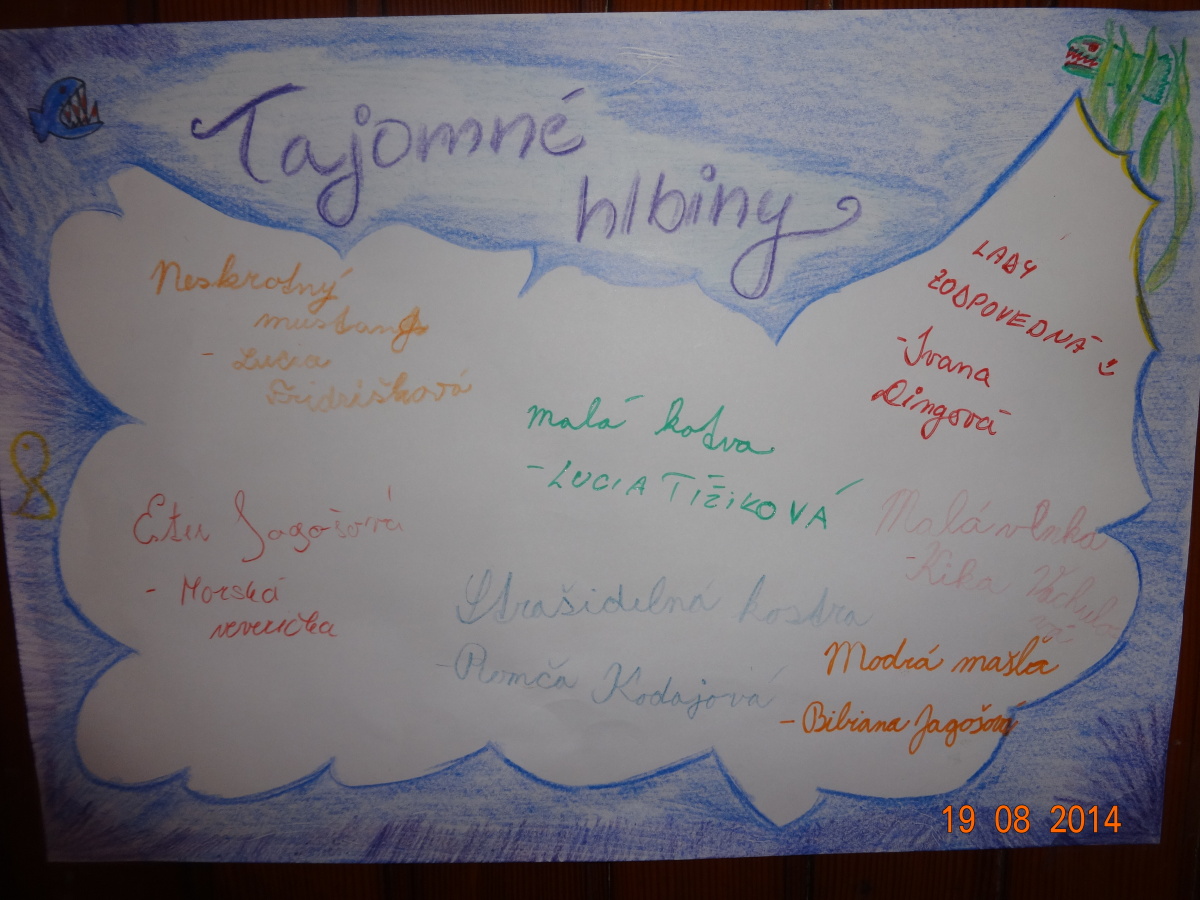 Tajomné
hlbiny
Neskrotný
mustang
- Lucia
Fridrišková
LADY
ZODPOVEDNÁ
- Ivana
Dingová
malá kotva
- LUCIA TIŽIKOVÁ
Ester Jagošová
- Morská
veverička
Malá vlnka
- Kika Vachulo
vá
Strašidelná kostra
- Romča Kodajová
Modrá mašľa
- Bibiana Jagošová
19 08 2014